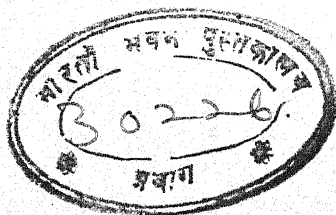 भारती भवन पुस्तकालय
30226.
प्रयाग